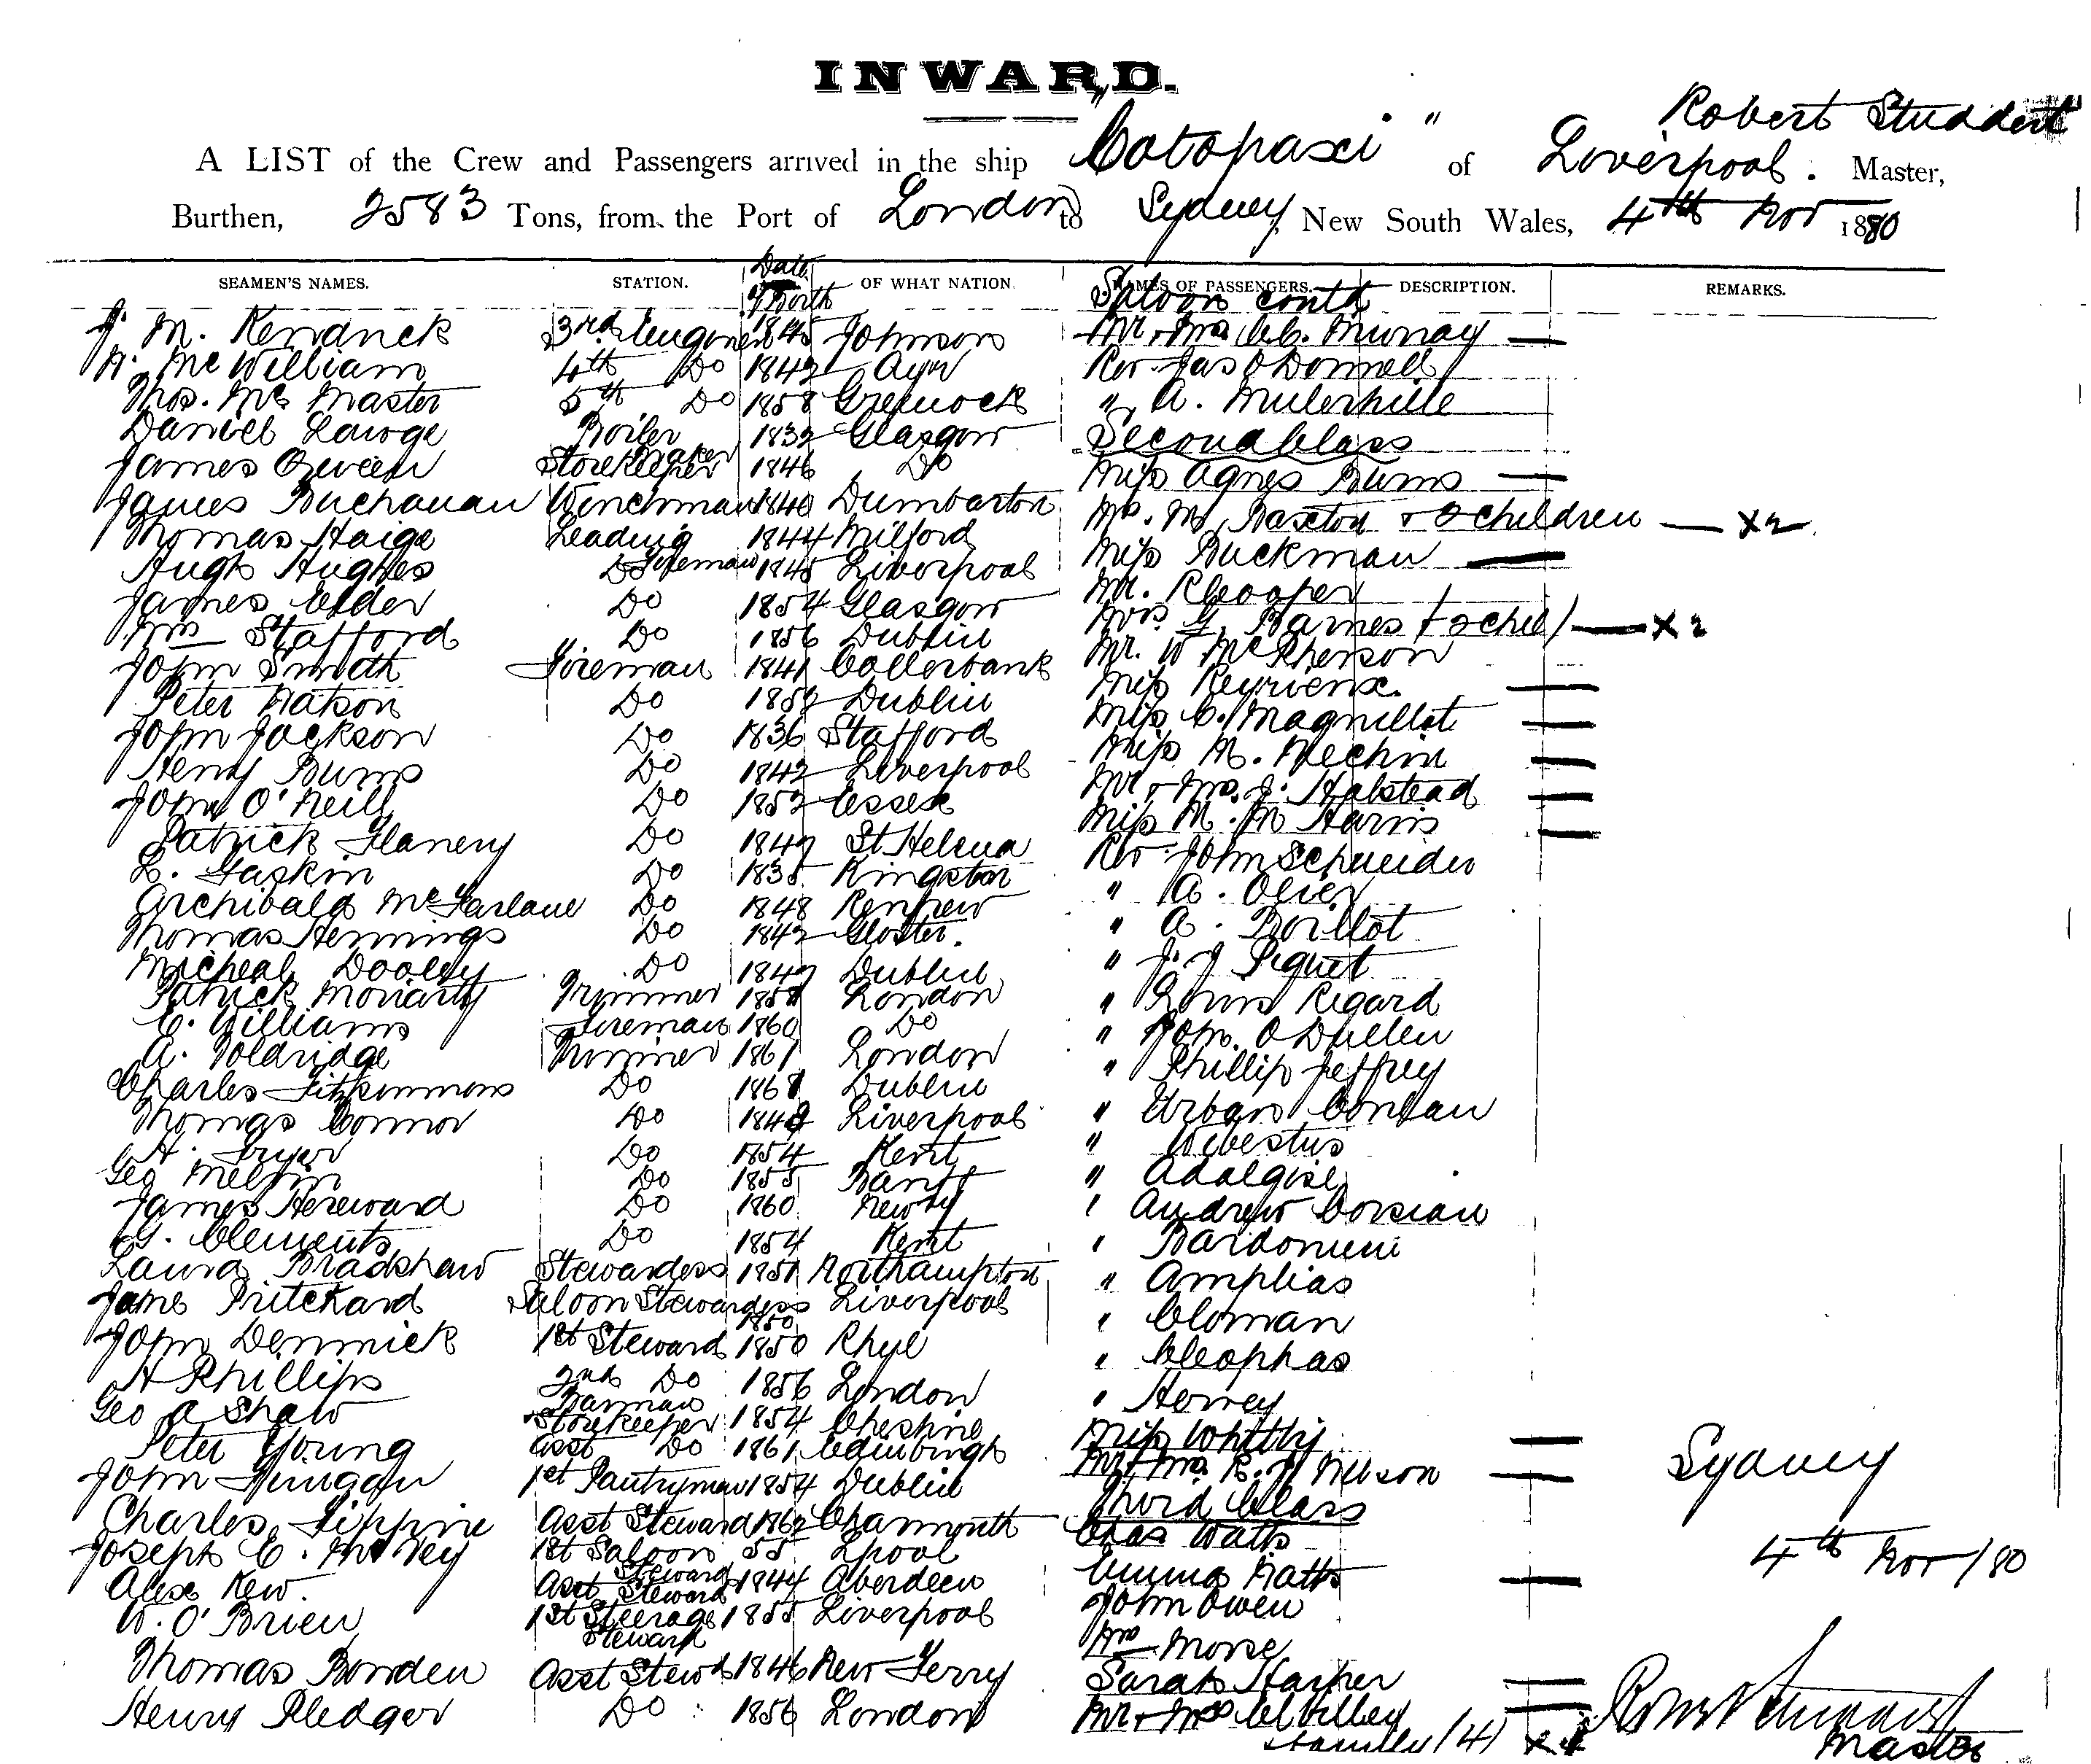 INWARD.
Robert Studdert
A LIST of the Crew and Passengers arrived in the ship "Cotopaxi" of Liverpool. Master,
Burthen, 2583 Tons, from the Port of London to Sydney, New South Wales, 4th Nov 1880
SEAMEN'S NAMES. STATION. Date of Birth OF WHAT NATION. NAMES OF PASSENGERS. DESCRIPTION. REMARKS.
Saloon contd
J. M. Kendrick 3rd Engineer 1845 Johnson Mr & Mrs C. Murray —
McWilliam 4th Do 1842 Ayr Rev Jas O Donnell
Thos. Mc Master 5th Do 1858 Greenock " A.
Daniel Boiler Maker 1832 Glasgow Second Class
James Storekeeper 1846 Do Miss Agnes Burns —
James Buchanan Winchman 1840 Dumbarton Mrs. M. Baxton & 2 children — X2
Thomas Haige Leading Fireman 1844 Milford Miss Buckman —
Hugh Hughes Do 1845 Liverpool Mr. R Cooper
James Elder Do 1854 Glasgow Mrs G. Barnes & 2 chil/ — X2
Wm Stafford Do 1856 Dublin Mr. W McPherson
John Smith Fireman 1841 Miss —
Peter Watson Do 1852 Dublin Miss C. Magnillat —
John Jackson Do 1836 Stafford Miss M. Nechin —
Henry Burns Do 1842 Liverpool Mr & Mrs. J. Halstead —
John O'Neill Do 1852 Essex Miss M. M Harris —
Patrick Flanery Do 1847 St Helena Rev John Schneider
L. Gaskin Do 1835 Kingston " A. Olier
Archibald McFarlane Do 1848 Renfrew " A. Boillot
Thomas Hennings Do 1842 Gloster. " J. J Piquet
Micheal Dooley Do 1847 Dublin " Louis Regard
Patrick Moriarty Trimmer 1858 London " Jom. O Dullen
C. Williams Fireman 1860 Do " Phillip Jeffrey
A. Woldridge Trimmer 1861 London " Urban
Charles Fitzsimmons Do 1861 Dublin
Thomas Connor Do 1848 Liverpool " Adalgise
H. Fryer Do 1854 Kent ' Andrew Corsian
Geo Melvin Do 1855 Banff '
James Hereward Do 1860 Newry " Amplias
G. Clements Do 1854 Kent ' Cloman
Laura Bradshaw Stewardess 1851 Northampton ' Cleophas
Jane Pritchard Saloon Stewardess 1850 Liverpool ' Hervey
John Dennick 1st Steward 1850 Rhyl
H Phillips 2nd Do 1856 London
Geo A Shaw Barman Storekeeper 1854 Cheshire Miss Whitby —
Peter Young Asst Do 1861 Edinburgh Mr & Mrs. R. J. Nelson —
Sydney
John Finigan 1st Pantryman 1854 Dublin Third Class
Charles Tippine Asst Steward 1862 Charmouth Chas Watts
4th Nov/80
Joseph C. McVey 1st Saloon Steward 55 Lpool Emma Watts —
Alex Kew. Asst Steward 1844 Aberdeen John Owen
W. O'Brien 1st Steerage Steward 1855 Liverpool Mrs Morse
Thomas Bowden Asst Stewd 1846 New Ferry Sarah Harper —
Henry Pledger Do 1856 London Mr & Mrs Cilley —
& family (4) X 4
Robert Studdert
Master